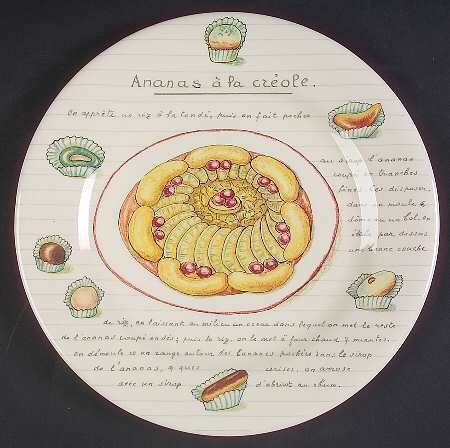 Ananas à la créole.
On apprête un riz à la condé, puis on fait pocher
au sirop l'ananas
coupé en tranches
fines. les disposer
dans un moule à
dôme ou un bol en
étale par dessus
une blanc couche
de riz, en laissant au milieu un creux dans lequel on met le reste
de l'ananas coupé en dés; puis le riz. on le met à four chaud 5 minutes.
on démoule et on range autour des bananes pochées dans le sirop
de l'ananas, q ques cerises. on arrose
avec un sirop d'abricot au rhum.